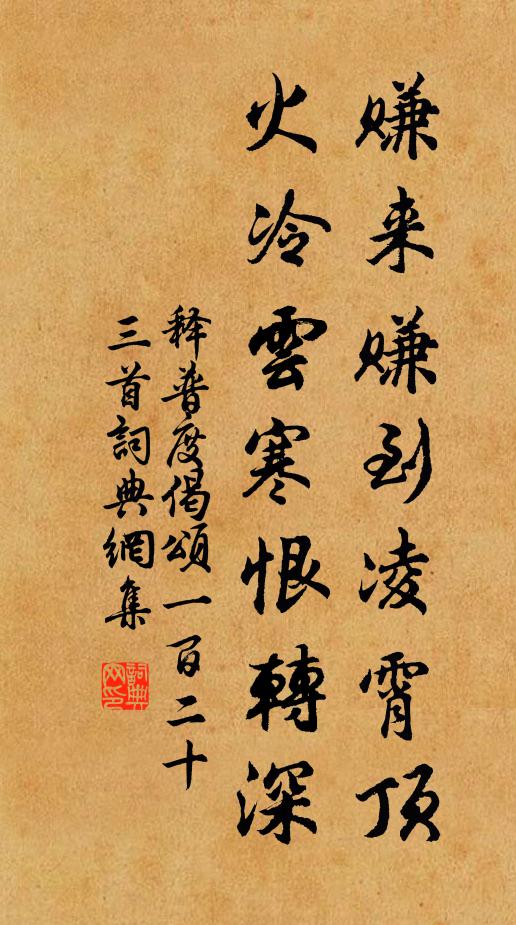 赚来赚到凌霄顶
火冷雲寒恨轉深
释普度偈頌一百二十
三首詞典網集
詞典
网印